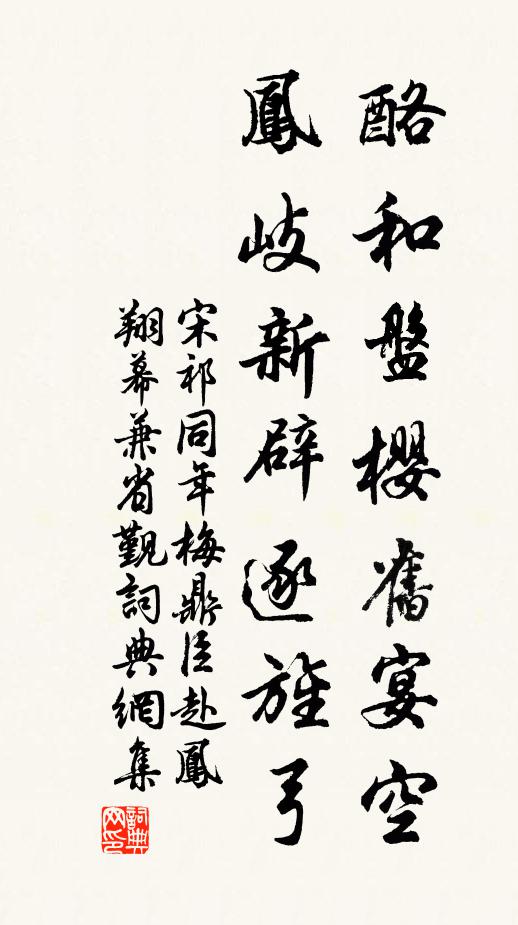 酪和盤櫻舊宴空
鳳岐新辟逐旌弓
宋祁同年梅鼎臣赴鳳
翔幕兼省觀詞典網集
詞典网印